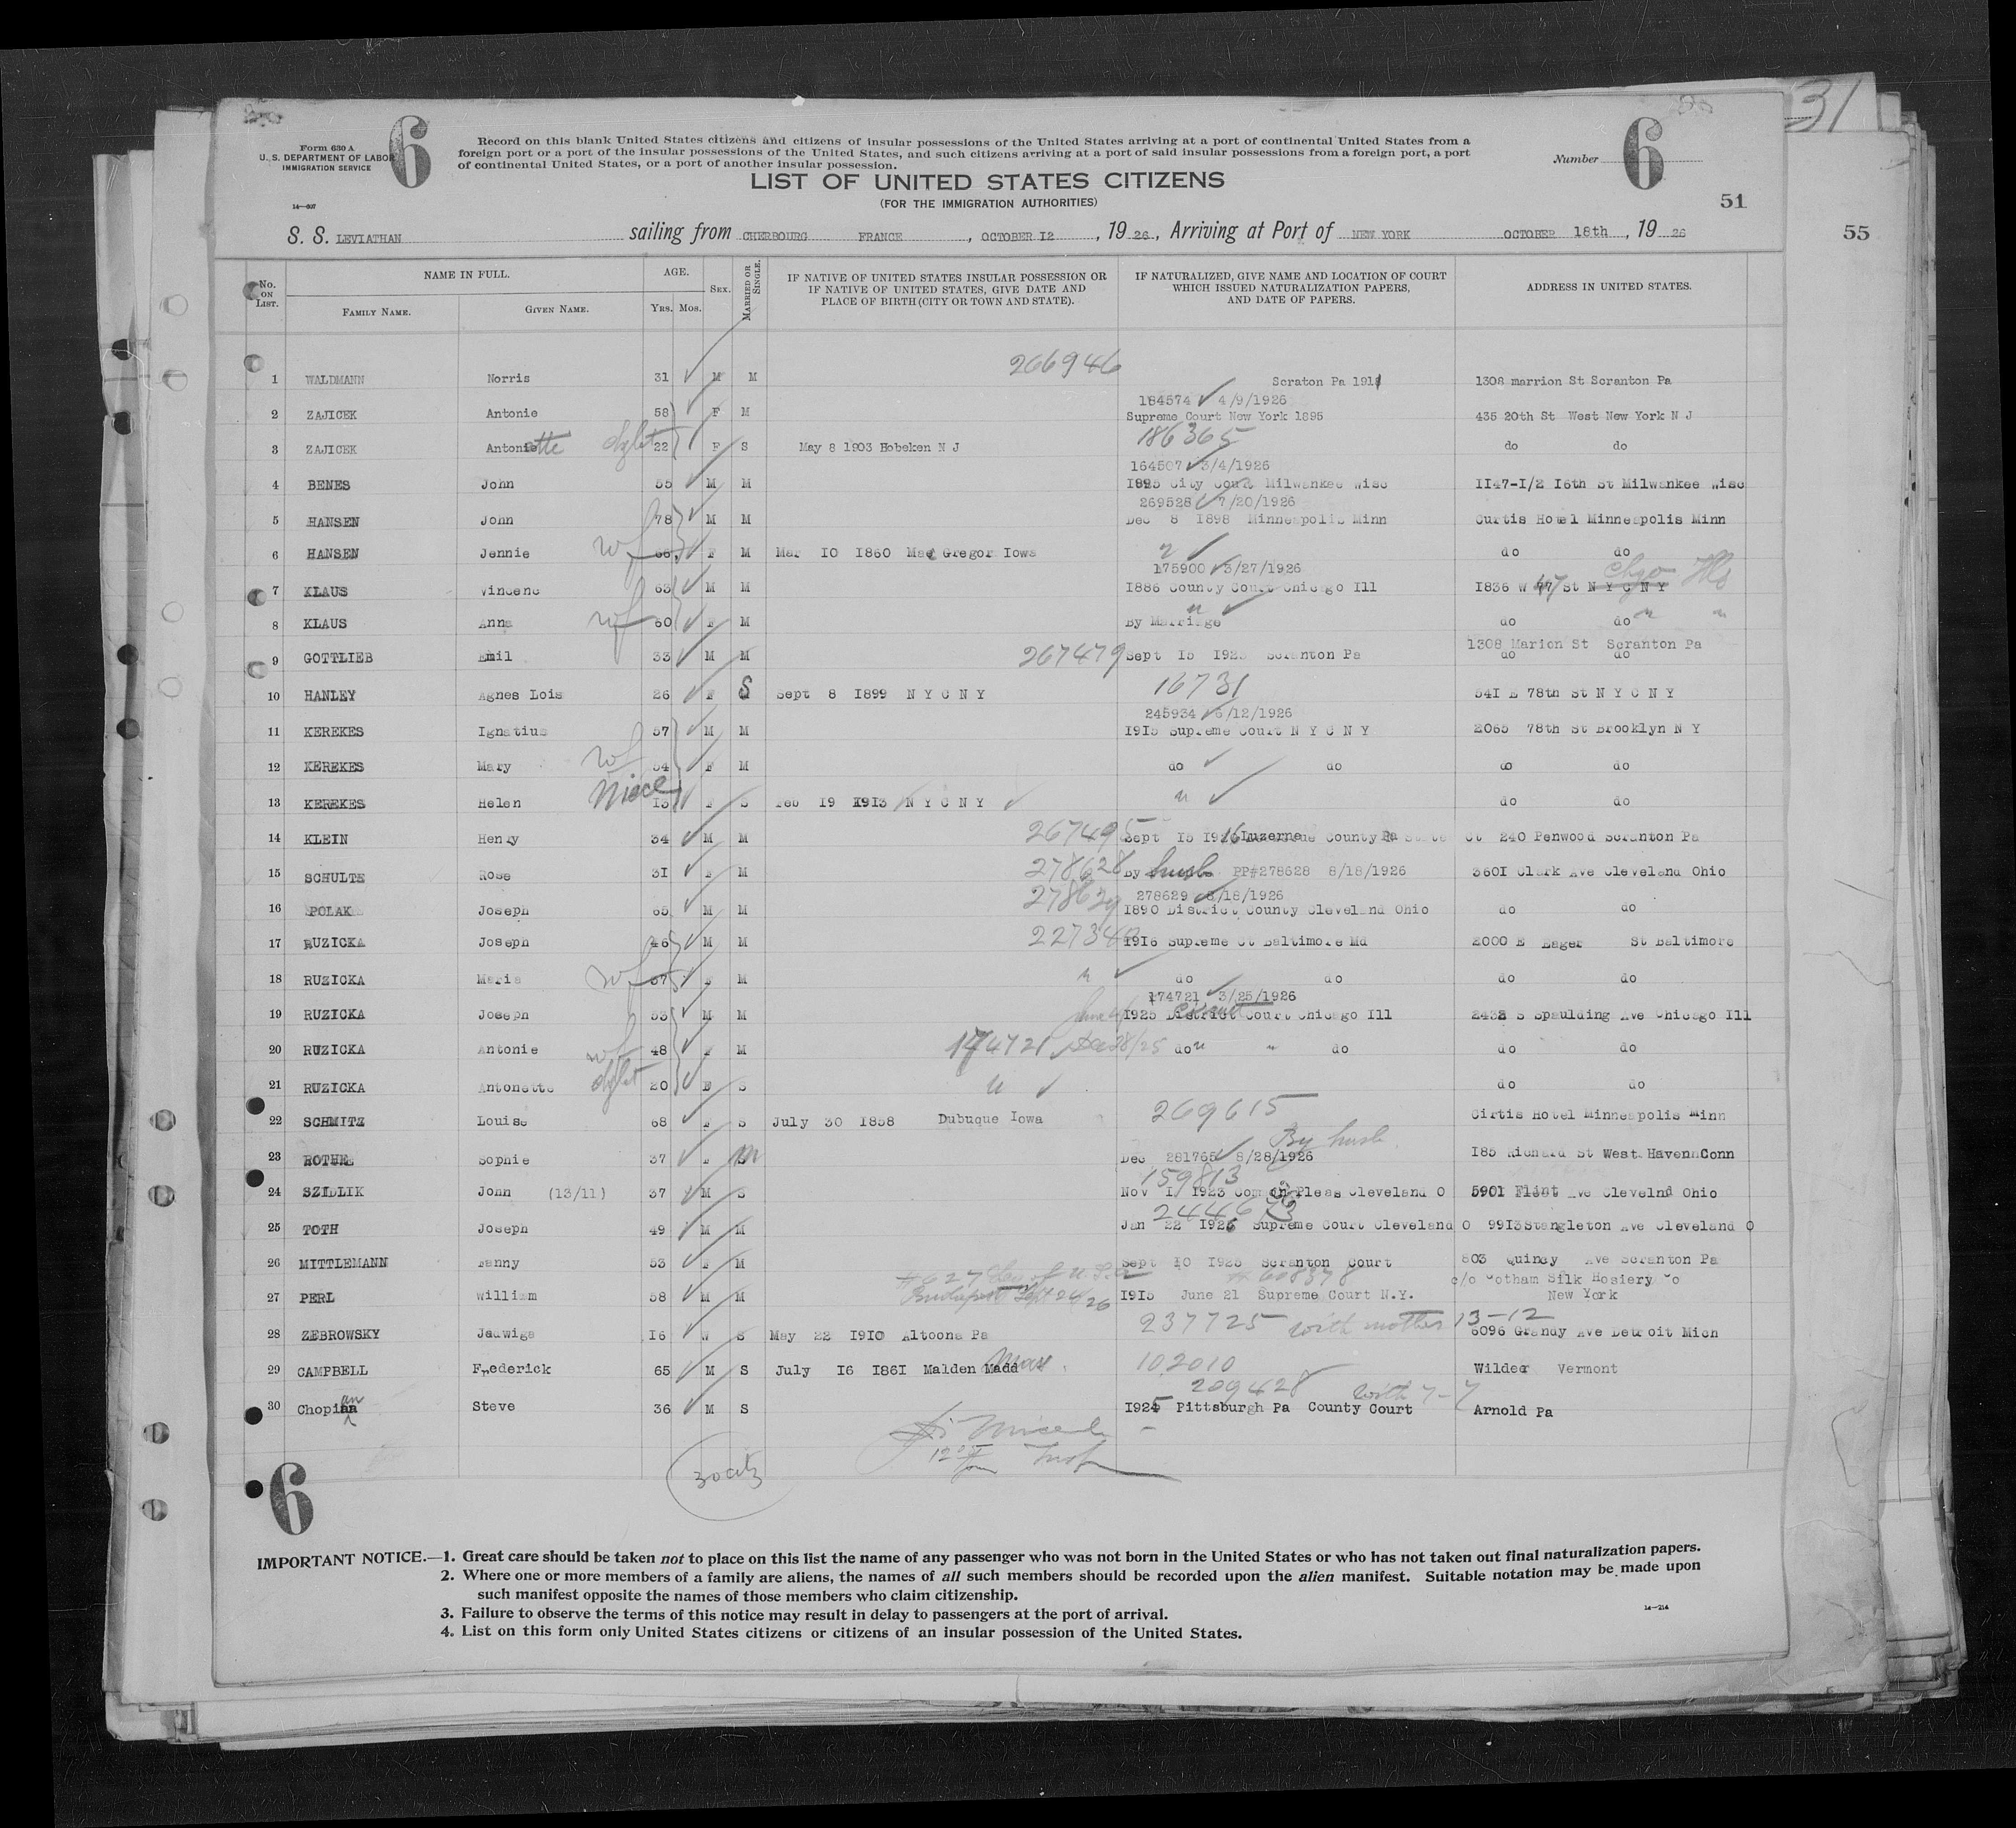 31
55
Form 630 A
U. S. DEPARTMENT OF LABOR
IMMIGRATION SERVICE
14—607
6
Record on this blank United States citizens and citizens of insular possessions of the United States arriving at a port of continental United States from a
foreign port or a port of the insular possessions of the United States, and such citizens arriving at a port of said insular possessions from a foreign port, a port
of continental United States, or a port of another insular possession.
LIST OF UNITED STATES CITIZENS
(FOR THE IMMIGRATION AUTHORITIES)
Number
6
51
S. S. LEVIATHAN sailing from CHERBOURG FRANCE , OCTOBER 12 , 19 26 , Arriving at Port of NEW YORK OCTOBER 18th , 19 26
No. ON LIST.
NAME IN FULL.
FAMILY NAME.
GIVEN NAME.
AGE.
YRS. MOS.
SEX.
MARRIED OR SINGLE.
IF NATIVE OF UNITED STATES INSULAR POSSESSION OR
IF NATIVE OF UNITED STATES, GIVE DATE AND
PLACE OF BIRTH (CITY OR TOWN AND STATE).
IF NATURALIZED, GIVE NAME AND LOCATION OF COURT
WHICH ISSUED NATURALIZATION PAPERS,
AND DATE OF PAPERS.
ADDRESS IN UNITED STATES.
266946
1 WALDMANN Norris 31 M M Scraton Pa 1911 1308 marrion St Scranton Pa
184574 4/9/1926
2 ZAJICEK Antonie 58 F M Supreme Court New York 1895 435 20th St West New York N J
186365
3 ZAJICEK Antoniette dght 22 F S May 8 1903 Hobeken N J do do
164507 3/4/1926
4 BENES John 55 M M 1895 City Court Milwankee Wisc 1147-1/2 16th St Milwankee Wisc
269528 7/20/1926
5 HANSEN John 78 M M Dec 8 1898 Minneapolis Minn Curtis Hotel Minneapolis Minn
6 HANSEN Jennie wf 66 F M Mar 10 1860 Mac Gregor Iowa " do do
175900 3/27/1926 Chgo Ills
7 KLAUS Vincenc 63 M M 1886 County Court Chicago Ill 1836 W 47 St N Y C N Y
8 KLAUS Anna wf 60 F M By Marriage " do do " "
1308 Marion St Scranton Pa
9 GOTTLIEB Emil 33 M M 267479 Sept 15 1923 Scranton Pa do do
16731
10 HANLEY Agnes Lois 26 F S Sept 8 1899 N Y C N Y 541 E 78th St N Y C N Y
245934 6/12/1926
11 KEREKES Ignatius 57 M M 1915 Supreme Court N Y C N Y 2065 78th St Brooklyn N Y
12 KEREKES Mary wf 54 F M do do do do
13 KEREKES Helen Niece 13 F S Feb 19 1913 N Y C N Y " do do
14 KLEIN Henry 34 M M 267495 Sept 15 1926 Luzerne County Pa State Ct 240 Penwood Scranton Pa
15 SCHULTE Rose 31 F M 278628 By husb PP#278628 8/18/1926 3601 Clark Ave Cleveland Ohio
278629 8/18/1926
16 POLAK Joseph 65 M M 278629 1890 District County Cleveland Ohio do do
17 RUZICKA Joseph 46 M M 227340 1916 Supreme Ct Baltimore Md 2000 E Eager St Baltimore
18 RUZICKA Maria wf 37 F M " do do do do
174721 3/25/1926
19 RUZICKA Joseph 53 M M 1925 District Circuit Court Chicago Ill 2432 S Spaulding Ave Chicago Ill
20 RUZICKA Antonie wf 48 F M 174721 28/25 do " " do do do
21 RUZICKA Antonette dght 20 F S " do do
269615
22 SCHMITZ Louise 68 F S July 30 1858 Dubuque Iowa Cirtis Hotel Minneapolis Minn
By husb.
23 ROTHE Sophie 37 F M Dec 281765 8/28/1926 185 Richard St West HavennConn
159813
24 SZIDLIK John (13/11) 37 M S Nov 1 1923 Common Pleas Cleveland O 5901 Flint Ave Clevelnd Ohio
244663
25 TOTH Joseph 49 M M Jan 22 1926 Supreme Court Cleveland O 9913Stangleton Ave Cleveland O
26 MITTLEMANN Fanny 53 F M Sept 10 1925 Scranton Court 803 Quincy Ave Scranton Pa
#627 of U.S.A # 608378 c/o Gotham Silk Hosiery Co
27 PERL William 58 M M Budapest Sept 24/26 1915 June 21 Supreme Court N.Y. New York
237725 with mother 13-12
28 ZEBROWSKY Jadwiga 16 W S May 22 1910 Altoona Pa 6096 Grandy Ave Detroit Mich
29 CAMPBELL Frederick 65 M S July 16 1861 Malden Madd Mass 102010 Wilder Vermont
209428 with 7-7
30 Chopian Steve 36 M S 1925 Pittsburgh Pa County Court Arnold Pa
Insp
30 citz
6
IMPORTANT NOTICE.—1. Great care should be taken not to place on this list the name of any passenger who was not born in the United States or who has not taken out final naturalization papers.
2. Where one or more members of a family are aliens, the names of all such members should be recorded upon the alien manifest. Suitable notation may be made upon
such manifest opposite the names of those members who claim citizenship.
3. Failure to observe the terms of this notice may result in delay to passengers at the port of arrival.
4. List on this form only United States citizens or citizens of an insular possession of the United States.
14—214